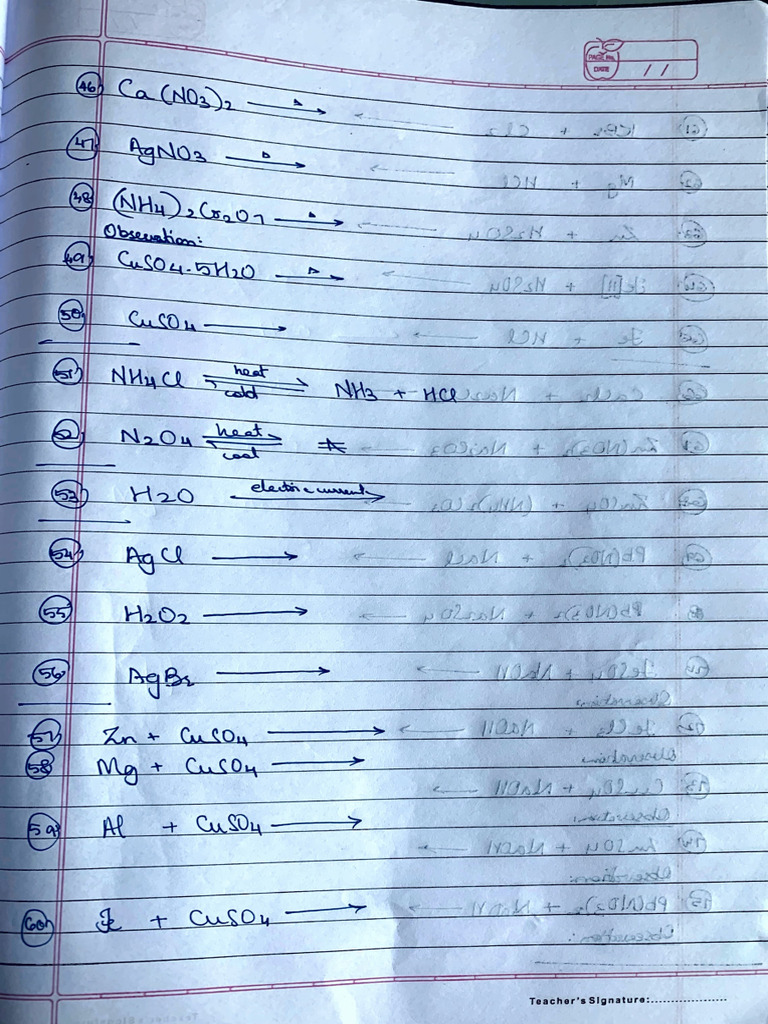 PAGE No.
DATE / /
46 Ca(NO3)2 —Δ→
47 AgNO3 —Δ→
48 (NH4)2Cr2O7 —Δ→
Observation:
49 CuSO4·5H2O —Δ→
50 CuSO4 →
51 NH4Cl heat ⇌ cold NH3 + HCl
52 N2O4 heat ⇌ cool
53 H2O electric current →
54 AgCl →
55 H2O2 →
56 AgBr →
57 Zn + CuSO4 →
58 Mg + CuSO4 →
59 Al + CuSO4 →
60 Fe + CuSO4 →
Teacher's Signature:...................